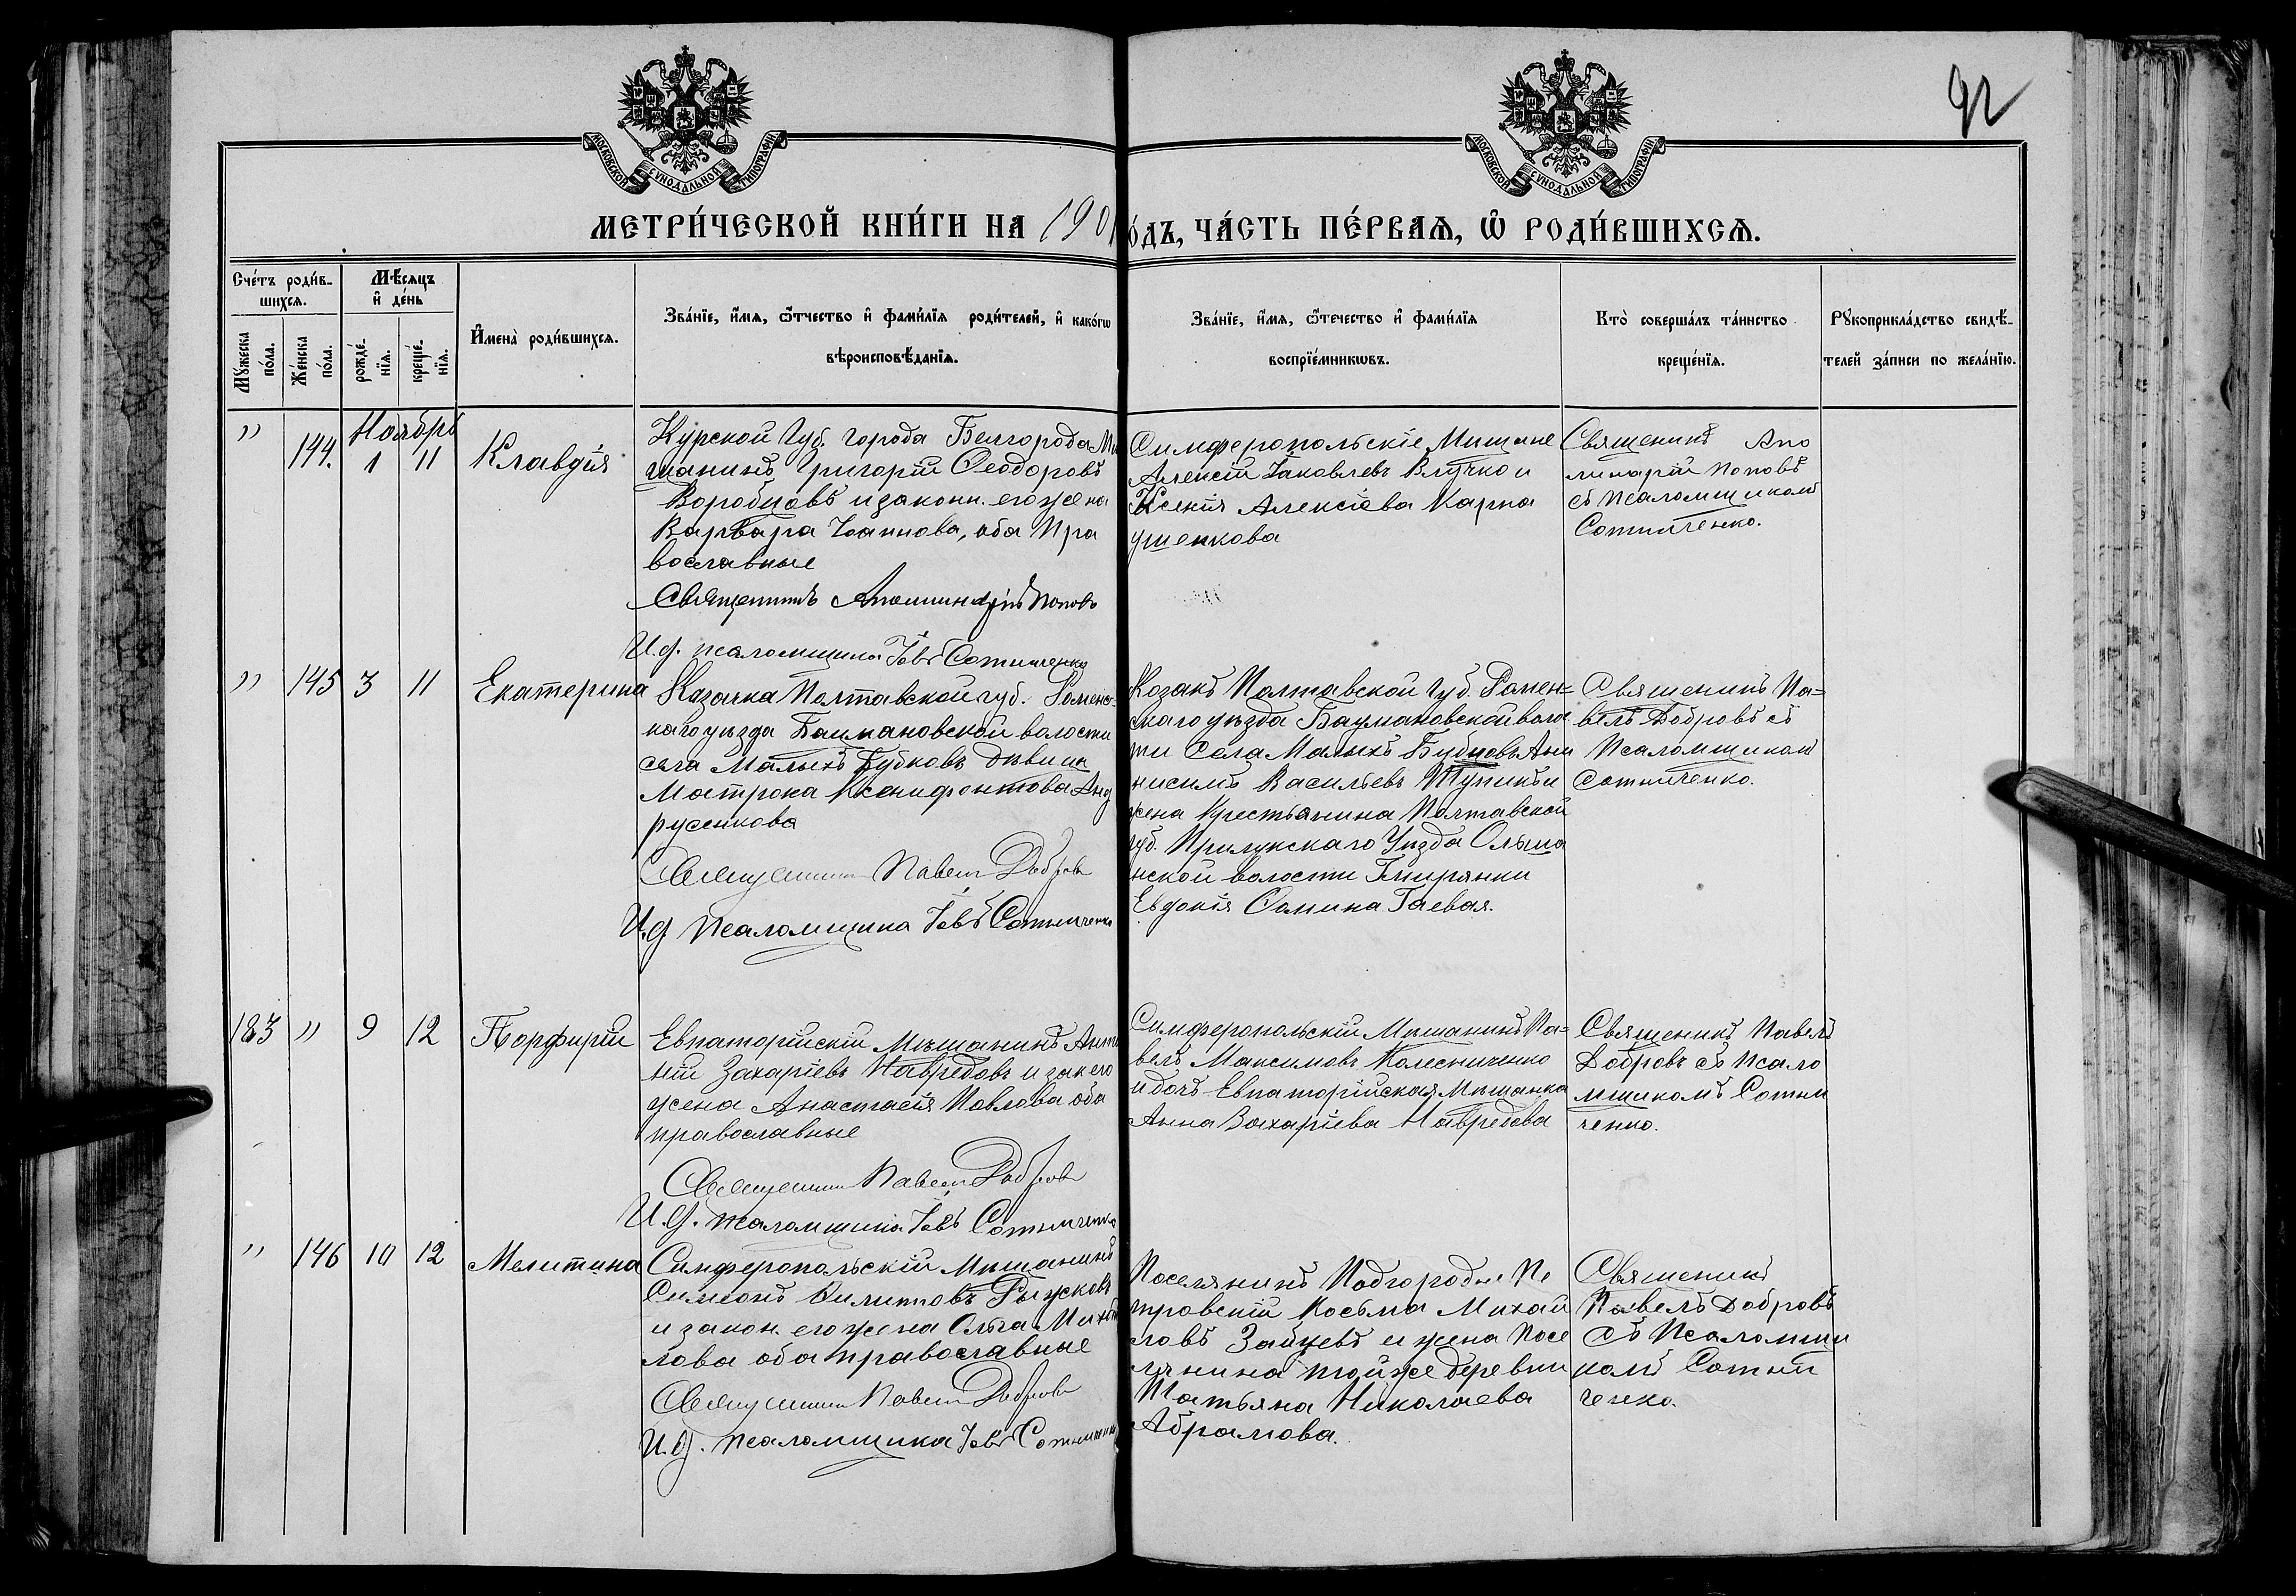 92
МОСКОВСКОЙ СѴНОДАЛЬНОЙ ТИПОГРАФІИ
МОСКОВСКОЙ СѴНОДАЛЬНОЙ ТИПОГРАФІИ
МЕТРИ́ЧЕСКОЙ КНИ́ГИ НА 190
О́ДЪ, ЧА́СТЬ ПЕ́РВАѦ, Ѿ РОДИ́ВШИХСѦ.
Сче́тъ роди́в-
шихсѧ.
Мѣ́сѧцъ
и҆ де́нь
Мꙋ́жеска
по́ла.
Же́нска
по́ла.
рожде́-
нїѧ.
креще́-
нїѧ.
И҆мена̀ роди́вшихсѧ.
Зва́нїе, и҆́мѧ, ѻ҆́тчество и҆ фами́лїѧ роди́телей, и҆ како́гѡ
вѣроисповѣ́данїѧ.
Зва́нїе, и҆́мѧ, ѻ҆те́чество и҆ фами́лїѧ
воспрїе́мникѡвъ.
Кто̀ соверша́лъ та́инство
креще́нїѧ.
Рꙋкоприкла́дство свидѣ́-
телей за́писи по жела́нїю.
" 144. Ноябрь 1 11 Клавдія
Курской Губ. города Белгорода Мѣ
щанинъ Григорій Ѳеодоровъ
Воробцовъ и законн. его жена
Варвара Іоаннова, оба Пра
вославные
Священникъ Аполлинарій Поповъ
И.д. псаломщика Іовъ Сотниченко
Симферопольскіе Мѣщане
Алексій Іаковлевъ Влучко и
Ксенія Алексіева Карна
ушенкова
Священикъ Апо
линарій Поповъ
съ Псаломщикомъ
Сотниченко.
" 145 3 11 Екатерина
Казачка Полтавской губ. Роменс-
каго уѣзда Баумановской волости
села Малыхъ Бубковъ дѣвица
Матрона Ксенофонтова Анд
русенкова
Священникъ Павелъ Добровъ
И.д. Псаломщика Іовъ Сотниченко
Козакъ Полтавской Губ. Ромен=
скаго уѣзда Баумановской волос
ти Села Малыхъ Бубновъ Ани
нисимъ Васильевъ Тупикъ и
жена Крестьянина Полтавской
губ. Прилукскаго Уѣзда Ольша
нской волости Гнирянки
Евдокія Сомина Гаевая.
Священикъ Па=
велъ Добровъ съ
Псаломщикомъ
Сотниченко.
183 " 9 12 Порфирій
Евпаторійскій Мѣщанинъ Анто
ній Захаріевъ Навредовъ и зак его
жена Анастасія Павлова оба
православные
Священникъ Павелъ Добровъ
И.д. псаломщика Іовъ Сотниченко
Симферопольскій Мѣщанинъ Па=
велъ Максимовъ Колесниченко
и дочь Евпаторійская Мѣщанка
Анна Захаріева Навредова
Священикъ Павелъ
Добровъ съ Псало
мщикомъ Сотни
ченко.
" 146 10 12 Мелитина
Симферопольскій Мѣщанинъ
Симеонъ Филиповъ Рыжковъ
и закон. его жена Ольга Михай
лова оба православные
Священникъ Павелъ Добровъ
И.д. псаломщика Іовъ Сотниченко
Поселянинъ Подгородне Пе
тровскій Косьма Михай
ловъ Зайцевъ и жена Посе
лянина тойже деревни
Татьяна Николаева
Абрамова.
Священикъ
Павелъ Добровъ
съ Псаломщи
комъ Сотни
ченко.